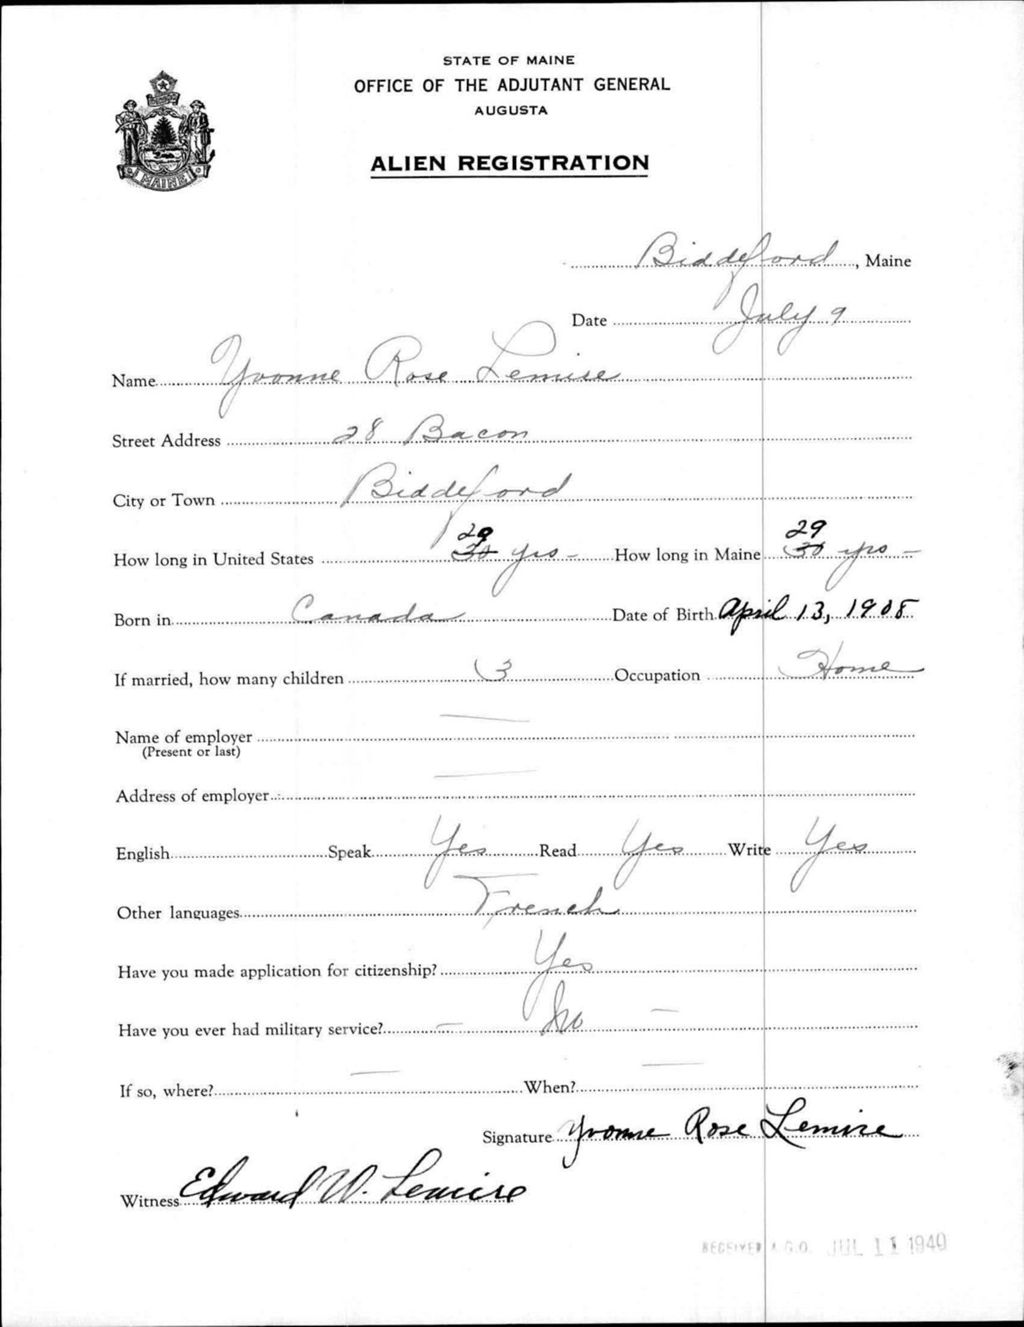 STATE OF MAINE
OFFICE OF THE ADJUTANT GENERAL
AUGUSTA
MAINE
ALIEN REGISTRATION
Biddeford, Maine
Date July 9
Name Yvonne Rose Lemire
Street Address 28 Bacon
City or Town Biddeford
29 29
How long in United States 30 yrs - How long in Maine 30 yrs -
Born in Canada Date of Birth April 13, 1908
If married, how many children 3 Occupation Home
Name of employer —
(Present or last)
Address of employer —
English Speak Yes Read Yes Write Yes
Other languages French
Have you made application for citizenship? Yes
Have you ever had military service? — No —
If so, where? — When? —
Signature Yvonne Rose Lemire
Witness Edward W. Lemire
RECEIVED A.G.O. JUL 11 1940